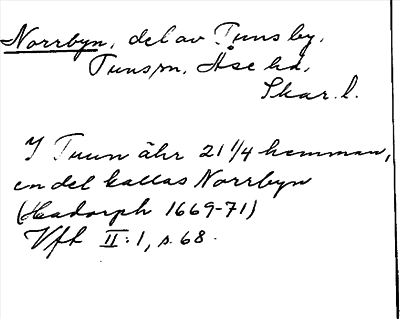 Norrbyn, del av Tuns by.
Tuns sn. Åse hd.
Skar. l.
I Tuun ähr 21 1/4 hemman,
en del kallas Norrbyn
(Hadorph 1669-71)
Vft II:1, s. 68.